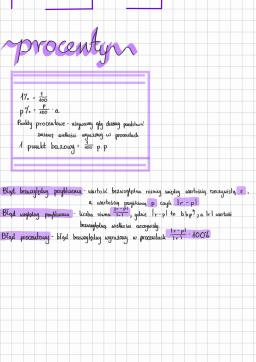 procenty
1% = 1/100
p% = p/100 · a
Punkty procentowe - używamy gdy chcemy porównać
zmianę wielkości wyrażonej w procentach
1 punkt bazowy = 1/100 p.p
Błąd bezwzględny przybliżenia - wartość bezwzględna różnicy między wartością rzeczywistą r,
a wartością przybliżoną p czyli |r-p|
Błąd względny przybliżenia - liczba równa |r-p|/|r|, gdzie |r-p| to b.b.p, a |r| wartość
bezwzględna wielkości
Błąd procentowy - błąd względny wyrażony w procentach |r-p|/|r| · 100%